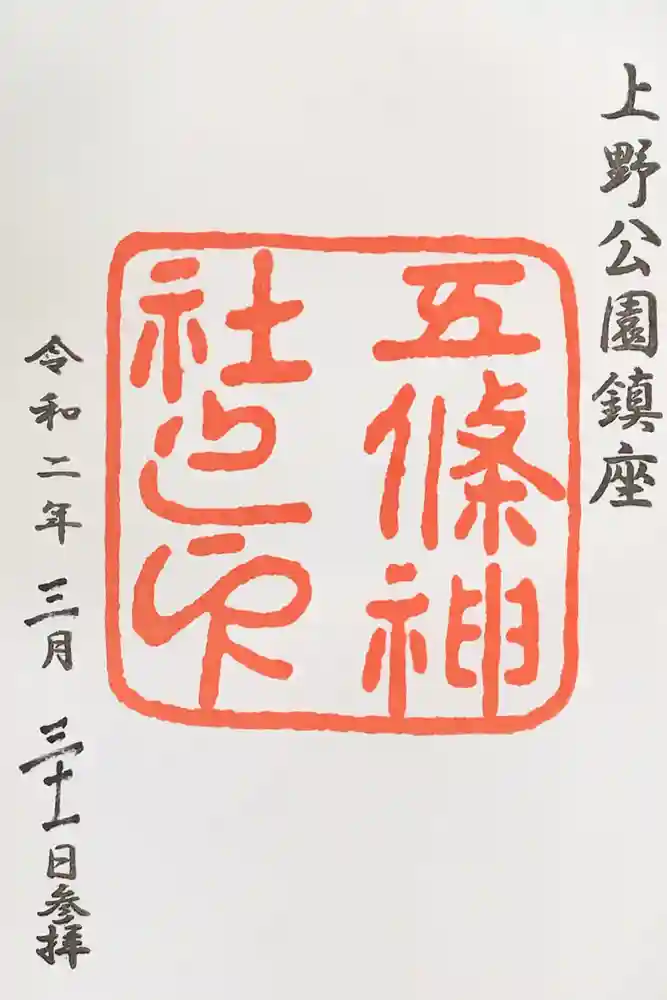 上野公園鎮座
五條神
社之印
令和二年三月三十一日参拝